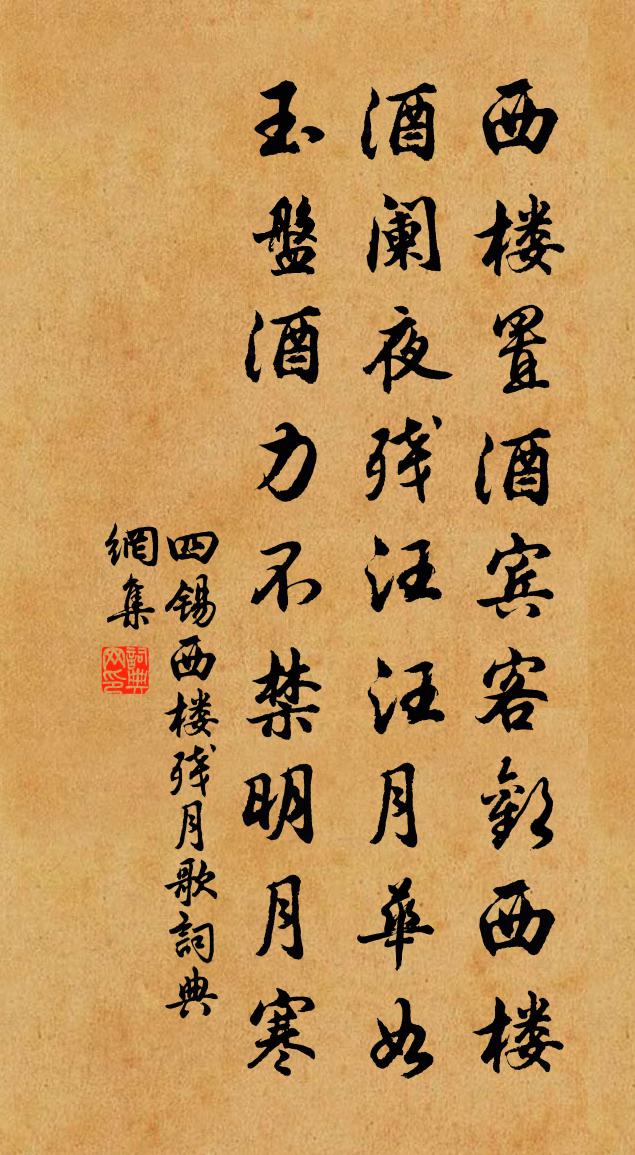 西楼置酒宾客欢西楼
酒阑夜残汪汪月华如
玉盤酒力不禁明月寒
四锡西楼残月歌詞典
網集
詞典
网印